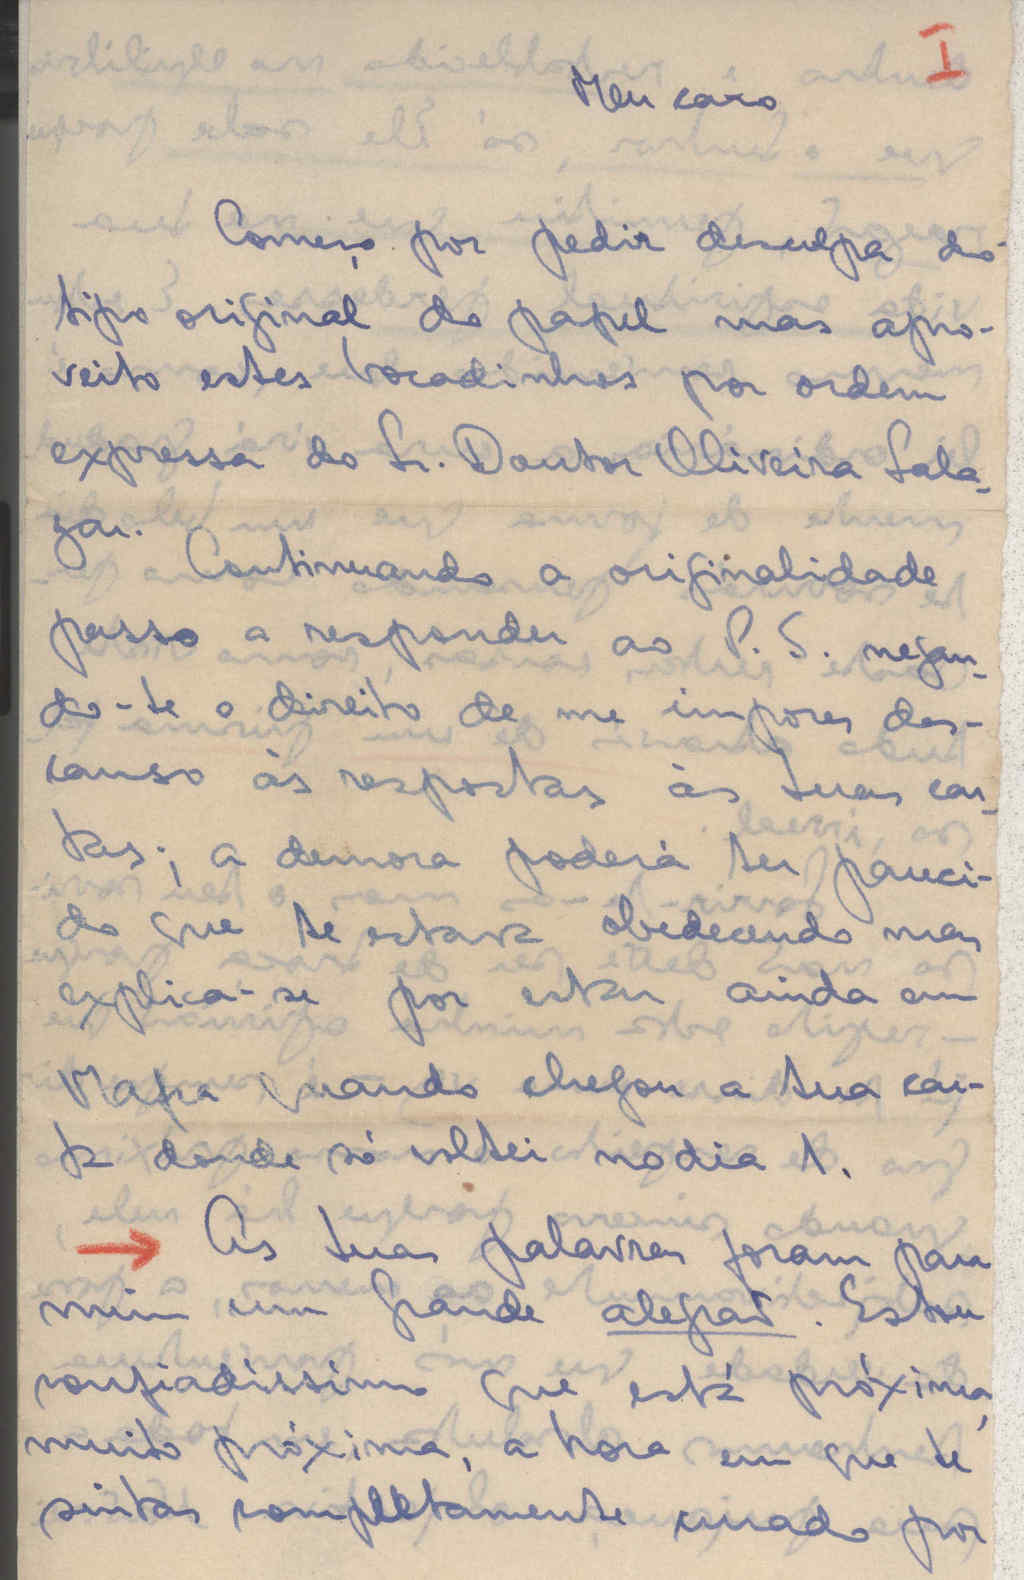 I
Meu caro
Começo por pedir desculpa do
tipo original do papel mas apro-
veito estes bocadinhos por ordem
expressa do Sr. Doutor Oliveira Sala-
zar.
Continuando a originalidade
passo a responder ao P. S. negan-
do-te o direito de me impores des-
canso às respostas às tuas car-
tas; a demora poderá ter pareci-
do que te estava obedecendo mas
explica-se por estar ainda em
Mafra quando chegou a tua car-
ta donde só voltei no dia 1.
As tuas palavras foram para
mim um grande alegrão. Estou
confiadíssimo que está próxima,
muito próxima, a hora em que te
sintas completamente curado por